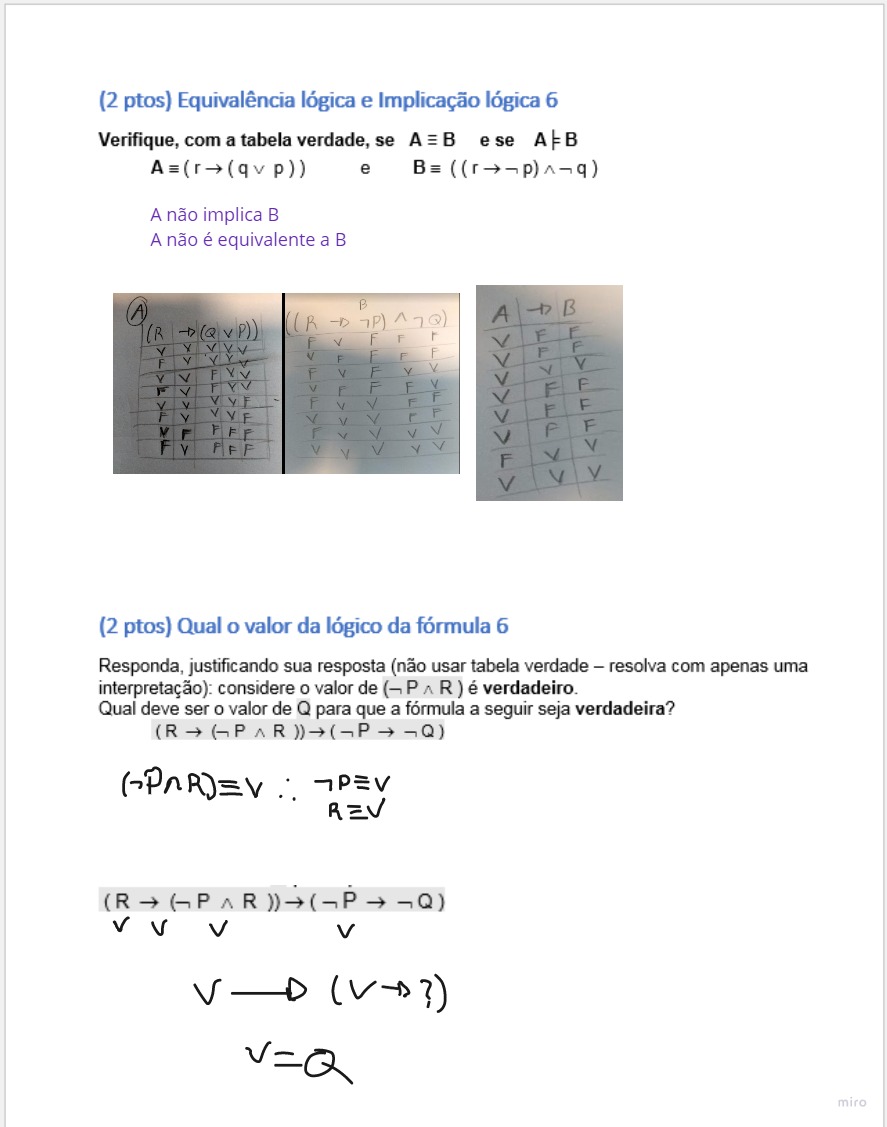 (2 ptos) Equivalência lógica e Implicação lógica 6
Verifique, com a tabela verdade, se A ≡ B e se A ╞ B
A ≡ ( r → ( q ∨ p ) ) e B ≡ ( ( r → ¬ p) ∧ ¬ q )
A não implica B
A não é equivalente a B
A
(R → (Q ∨ P))
V V V V V
F V V V V
V V F V V
F V F V V
V V V V F
F V V V F
V F F F F
F V F F F
B
((R → ¬P) ∧ ¬Q)
F V F F F
V F F F F
F V F V V
V F F F V
F V V F F
V V V F F
F V V V V
V V V V V
A → B
V F F
V F F
V V V
V F F
V F F
V F F
F V V
V V V
(2 ptos) Qual o valor da lógico da fórmula 6
Responda, justificando sua resposta (não usar tabela verdade – resolva com apenas uma
interpretação): considere o valor de (¬ P ∧ R ) é verdadeiro.
Qual deve ser o valor de Q para que a fórmula a seguir seja verdadeira?
( R → (¬ P ∧ R )) → ( ¬ P → ¬ Q )
(¬P∧R)≡V ∴ ¬P≡V
R≡V
( R → (¬ P ∧ R )) → ( ¬ P → ¬ Q )
V V V V
V → (V → ?)
V = Q
miro